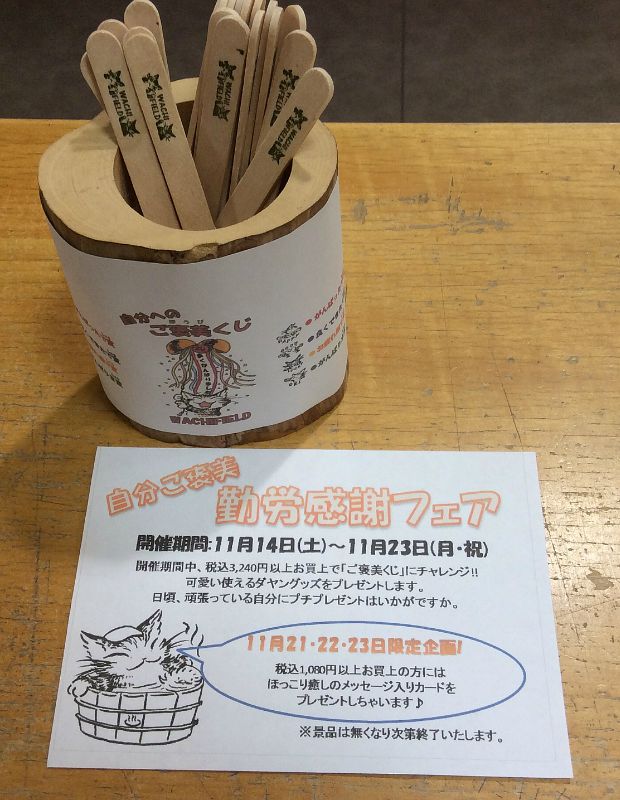 WACHI
FIELD
WACHI
FIELD
WACHI
自分への
ごほうび
ご褒美くじ
WACHIFIELD
自分ご褒美
勤労感謝フェア
開催期間:11月14日(土)~11月23日(月・祝)
開催期間中、税込3,240円以上お買上で「ご褒美くじ」にチャレンジ!!
可愛い使えるダヤングッズをプレゼントします。
日頃、頑張っている自分にプチプレゼントはいかがですか。
11月21・22・23日限定企画!
税込1,080円以上お買上の方には
ほっこり癒しのメッセージ入りカードを
プレゼントしちゃいます♪
※景品は無くなり次第終了いたします。